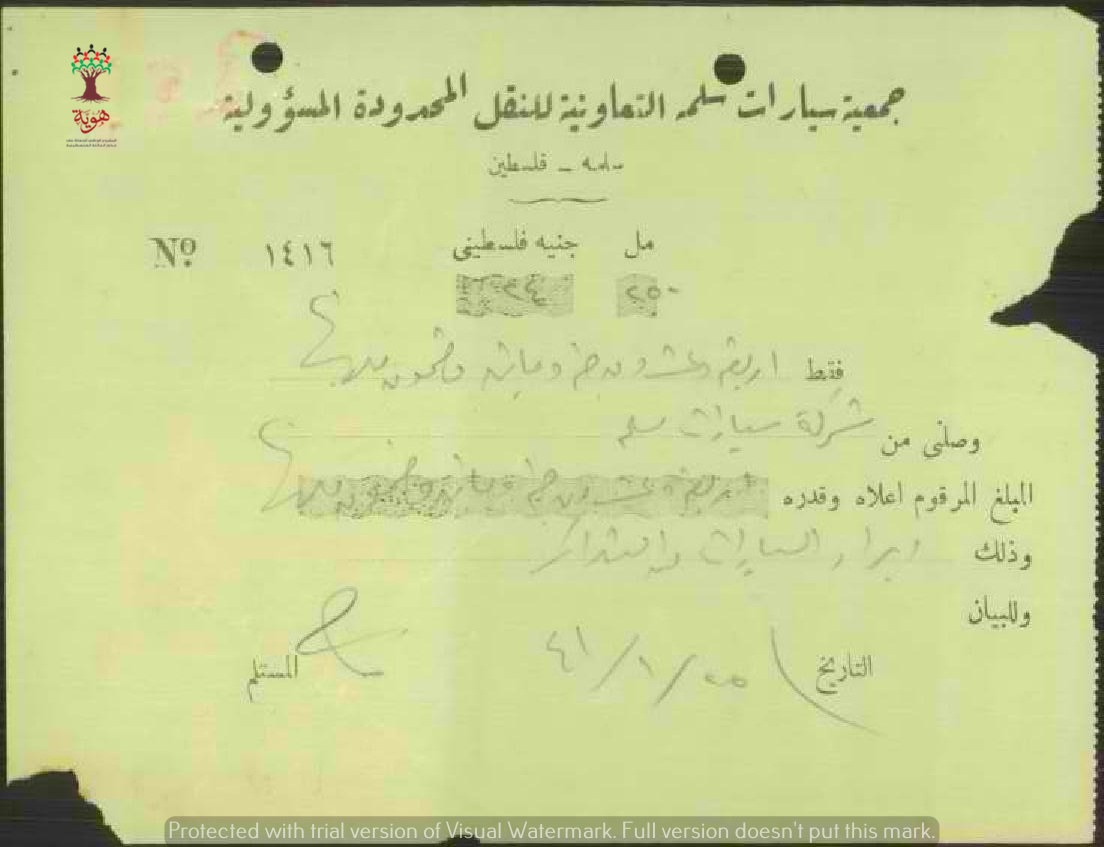 جمعية سيارات سلمه التعاونية للنقل المحدودة المسؤولية
سلمه ـ فلسطين
مل جنيه فلسطيني
Nº ١٤١٦
٢٥٠ ٢٤
فقط اربعة وعشرون جنيه ومايتي وخمسون ملا
وصلني من شركة سيارات سلمه
المبلغ المرقوم اعلاه وقدره اربعة وعشرون جنيه ومايتي وخمسون ملا
وذلك ايراد السيارات
وللبيان
التاريخ ٤١/١/٢٥
المستلم
هوية
Protected with trial version of Visual Watermark. Full version doesn't put this mark.